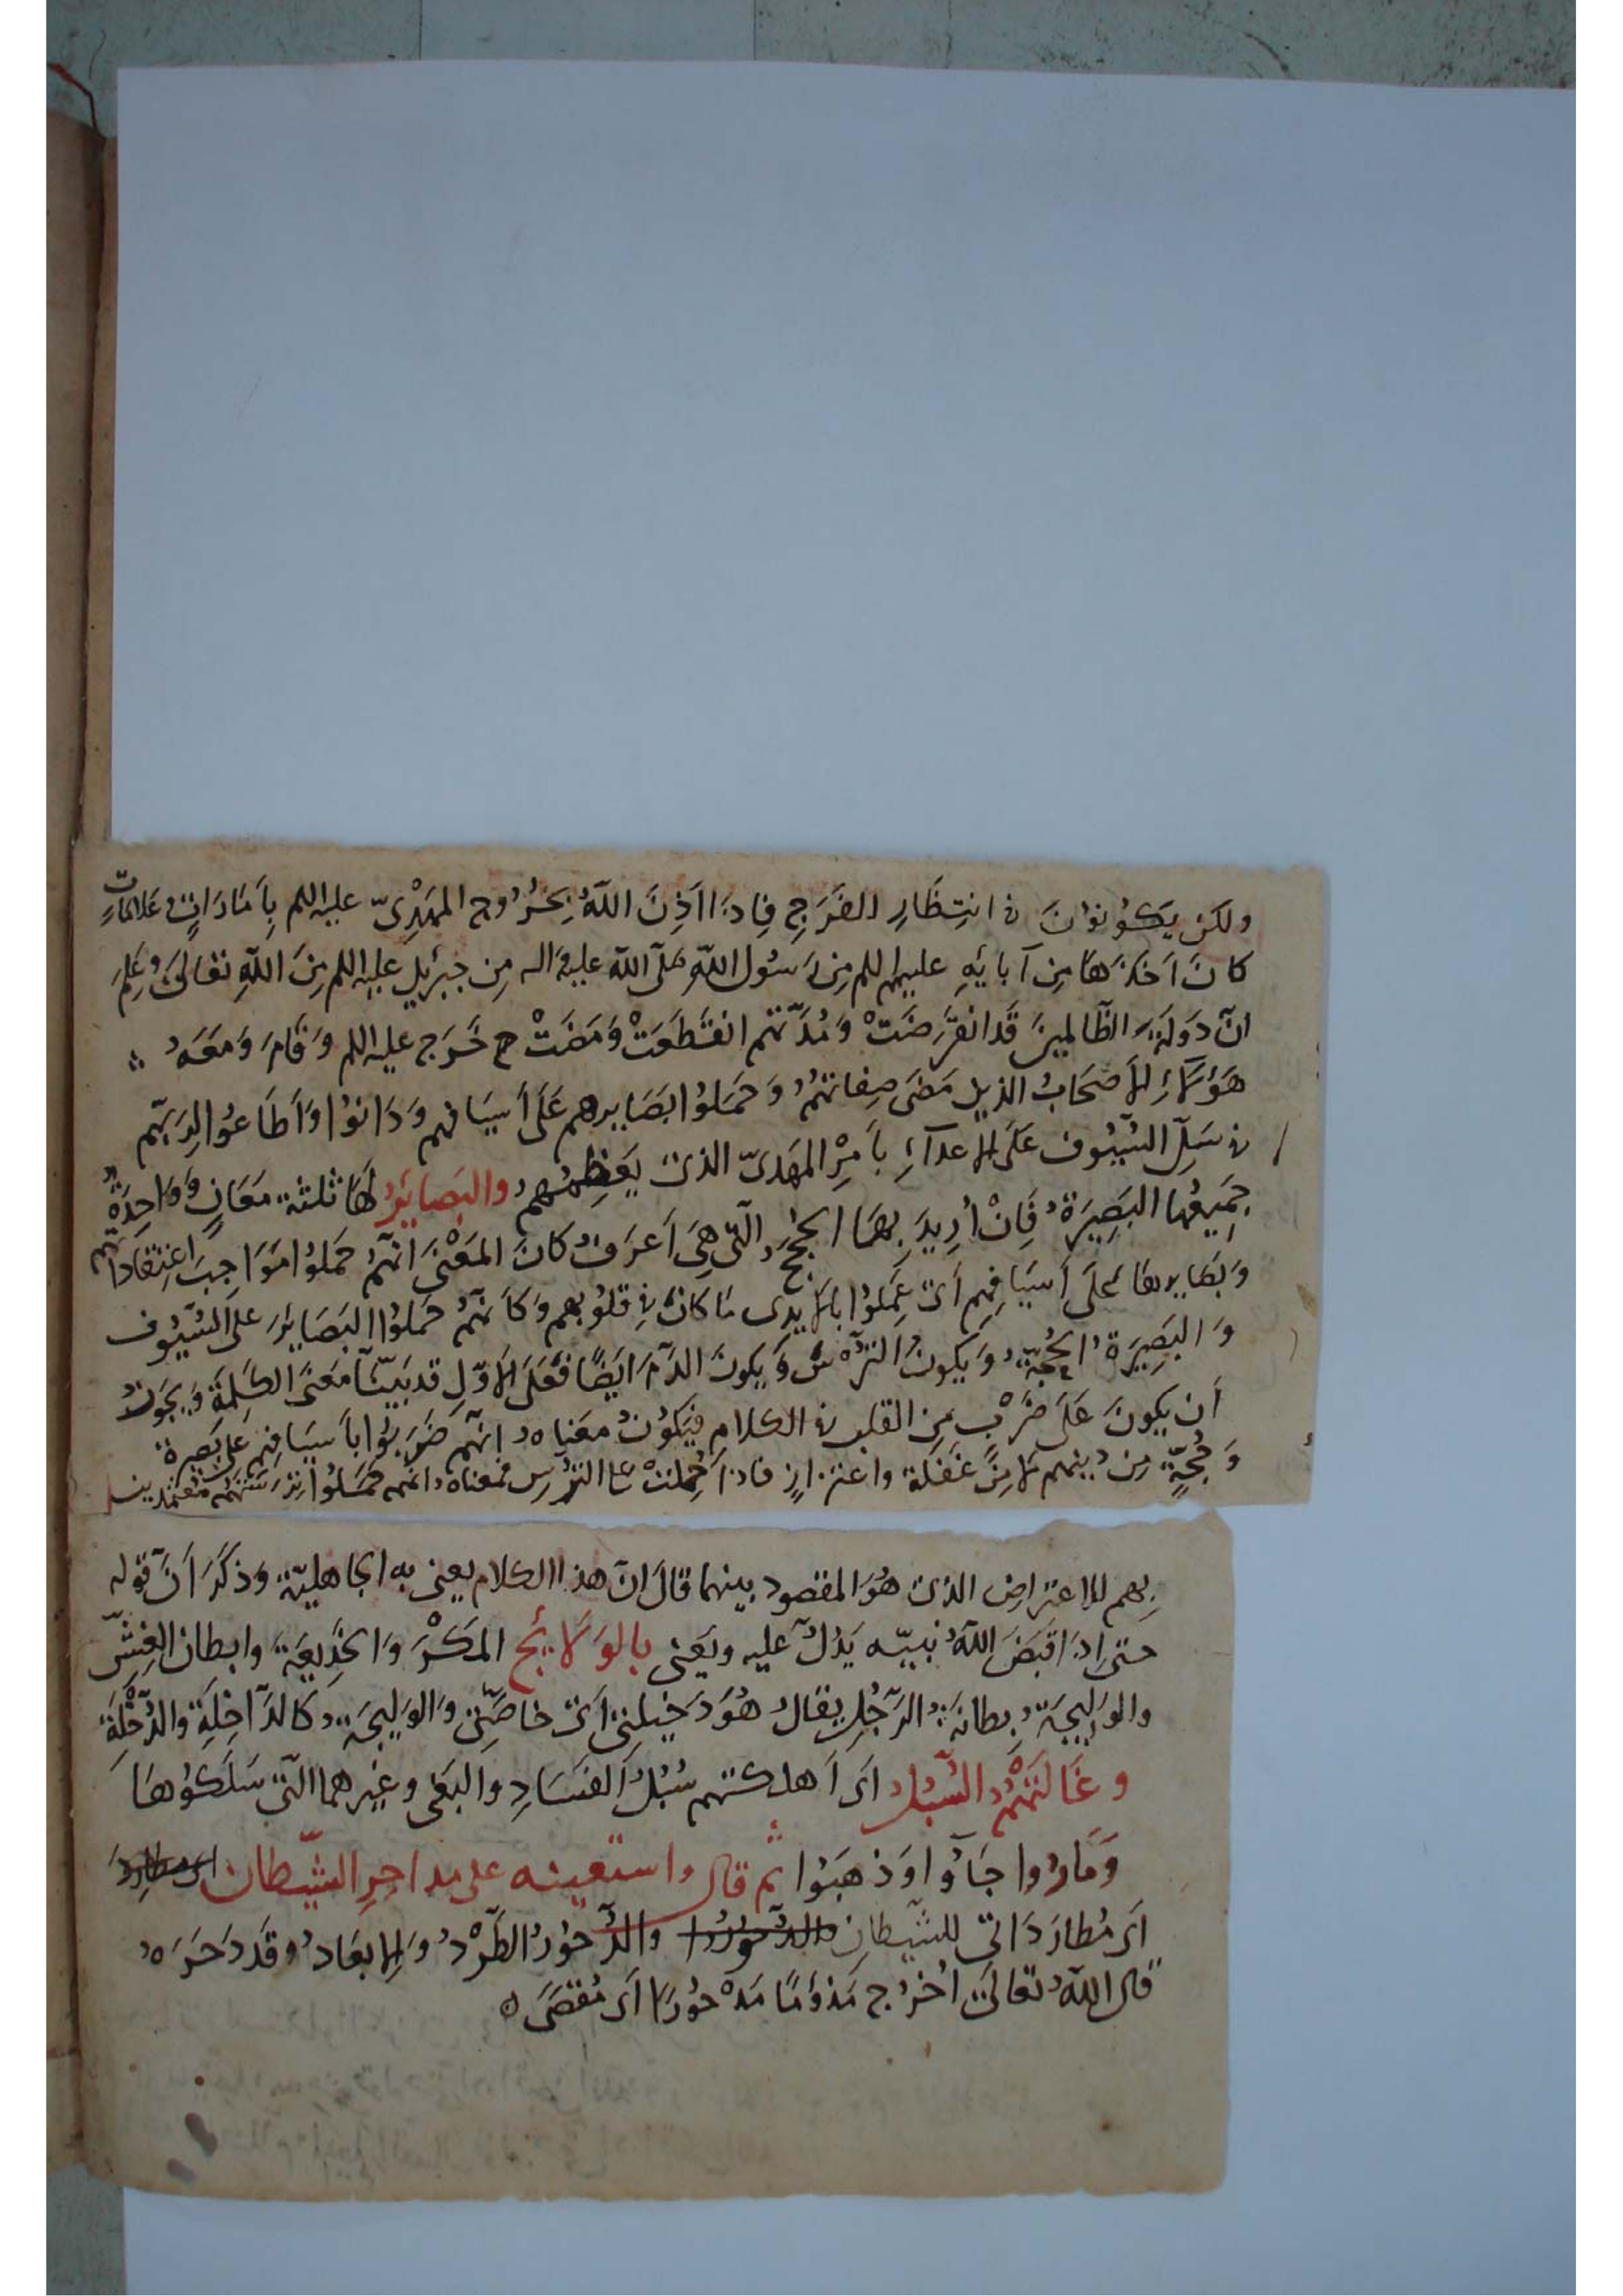 ولكن يَكُونُونَ في انتِظَارِ الفَرَجِ فَاِذَا اَذِنَ اللّٰهُ بِخُرُوج المَهْدِىّ عليه السلم بِاَمَارَاتٍ وَعَلامَاتٍ
كانَ اَخَذَهَا مِن آبائِهِ عليهم السلم مِن رَسُول اللّٰهِ صَلَّى اللّٰه عليه واله مِن جبرَئيل عليه السلم مِنَ اللّٰهِ تعَالىَ وَعَلِمَ
انّ دَولَةَ الظّالِمينَ قَد انقَرَضَتْ وَمُدَّتهم انقَطَعَتْ وَمَضَتْ ح خَرَج عليه السلم وَقَامَ وَمَعَهُ
هَؤلَاءِ الأصحَابُ الذين مَضَى صِفاتهُمْ وَحَمَلُوا بَصَايرهم عَلَى اَسيَافهم وَدَانُوْا وَاَطَاعُوا لِرَبّهم
في سَلِّ السُّيُوف عَلَى الاعدآءِ بأَمرِ المهدىّ الذى يَعِظهم والبَصائِرُ لهَا ثلثة مَعَانٍ وَوَاحِدَةُ
جَميعِهَا البَصِيرَةُ فَاِنْ اُرِيدَ بِهَا الحُجَج الّتى هِىَ اَعرَفُ كانَ المَعْنى انّهُمْ حَمَلُوا مَوَاجِبَ اعتِقَادَاتهم
وَبَصَايرهَا عَلَى اَسيَافِهِم اَى عَمِلُوا بالأيدِى مَا كانَ في قلُوبهم وَكاَنّهُمْ حَمَلُوا البَصَايرَ عَلَى السُّيُوف
وَالبَصِيرَةُ الحُجَّةُ وَيَكونُ التُّرْسَ وَيَكونُ الدَّمَ اَيضًا فَعَلَى الأوّلِ قد بَيّنّا مَعنىَ الكَلِمَة وَيجُوزُ
اَن يكُونَ عَلَى ضَرْبٍ مِنَ القلب في الكلام فَيَكُونُ معَناهُ اِنّهم ضَرَبُوا بِاَسيَافِهِم عَلى بَصيرة
وَحُجّةٍ مِن دينهم لا مِنْ غَفلة واغترارٍ فاذا حُمِلَتْ عَلى التُّرسِ فمعناه انّهم حَمَلُوا تِرَسَتَهُم متعمّدين
بِهِم الاعتراض الذى هُوَ المقصود بينهما قالَ انّ هذا الكلام يعنى به الجاهليّة وَذَكَرَ اَنّ قوله
حتى اِذَا قَبَضَ اللّٰهُ نَبيّه يَدُلُّ عليه ويَعْنى بِالوَلَائج المَكْرَ وَالخَدِيعَة وابطان الغِشّ
والوَلِيجَةُ بِطانَةُ الرَّجُلِ يقَالُ هُوَ دَخِيلتى اَى خاصَّتى وَالوَلِيجَة كالدَّاخِلَةِ والدُّخْلَةِ
وغَالَتْهُمُ السُّبُل اَى اَهلكتهم سُبُلُ الفَسَادِ والبَغى وغيرهما التى سَلَكُوهَا
وَمَارُوا جَآؤا وَذهَبُوا ثم قال واستعينه على مداحِرِ الشّيطان
اَى مُطارَدَاتى للشّيطان والدُّحُورُ الطَّرْدُ وَالإبعَادُ وَقَد دَحَرَهُ
قال اللّٰهُ تعَالَى اُخرُج مَذؤمًا مَدْحُورًا اَى مُقصَى